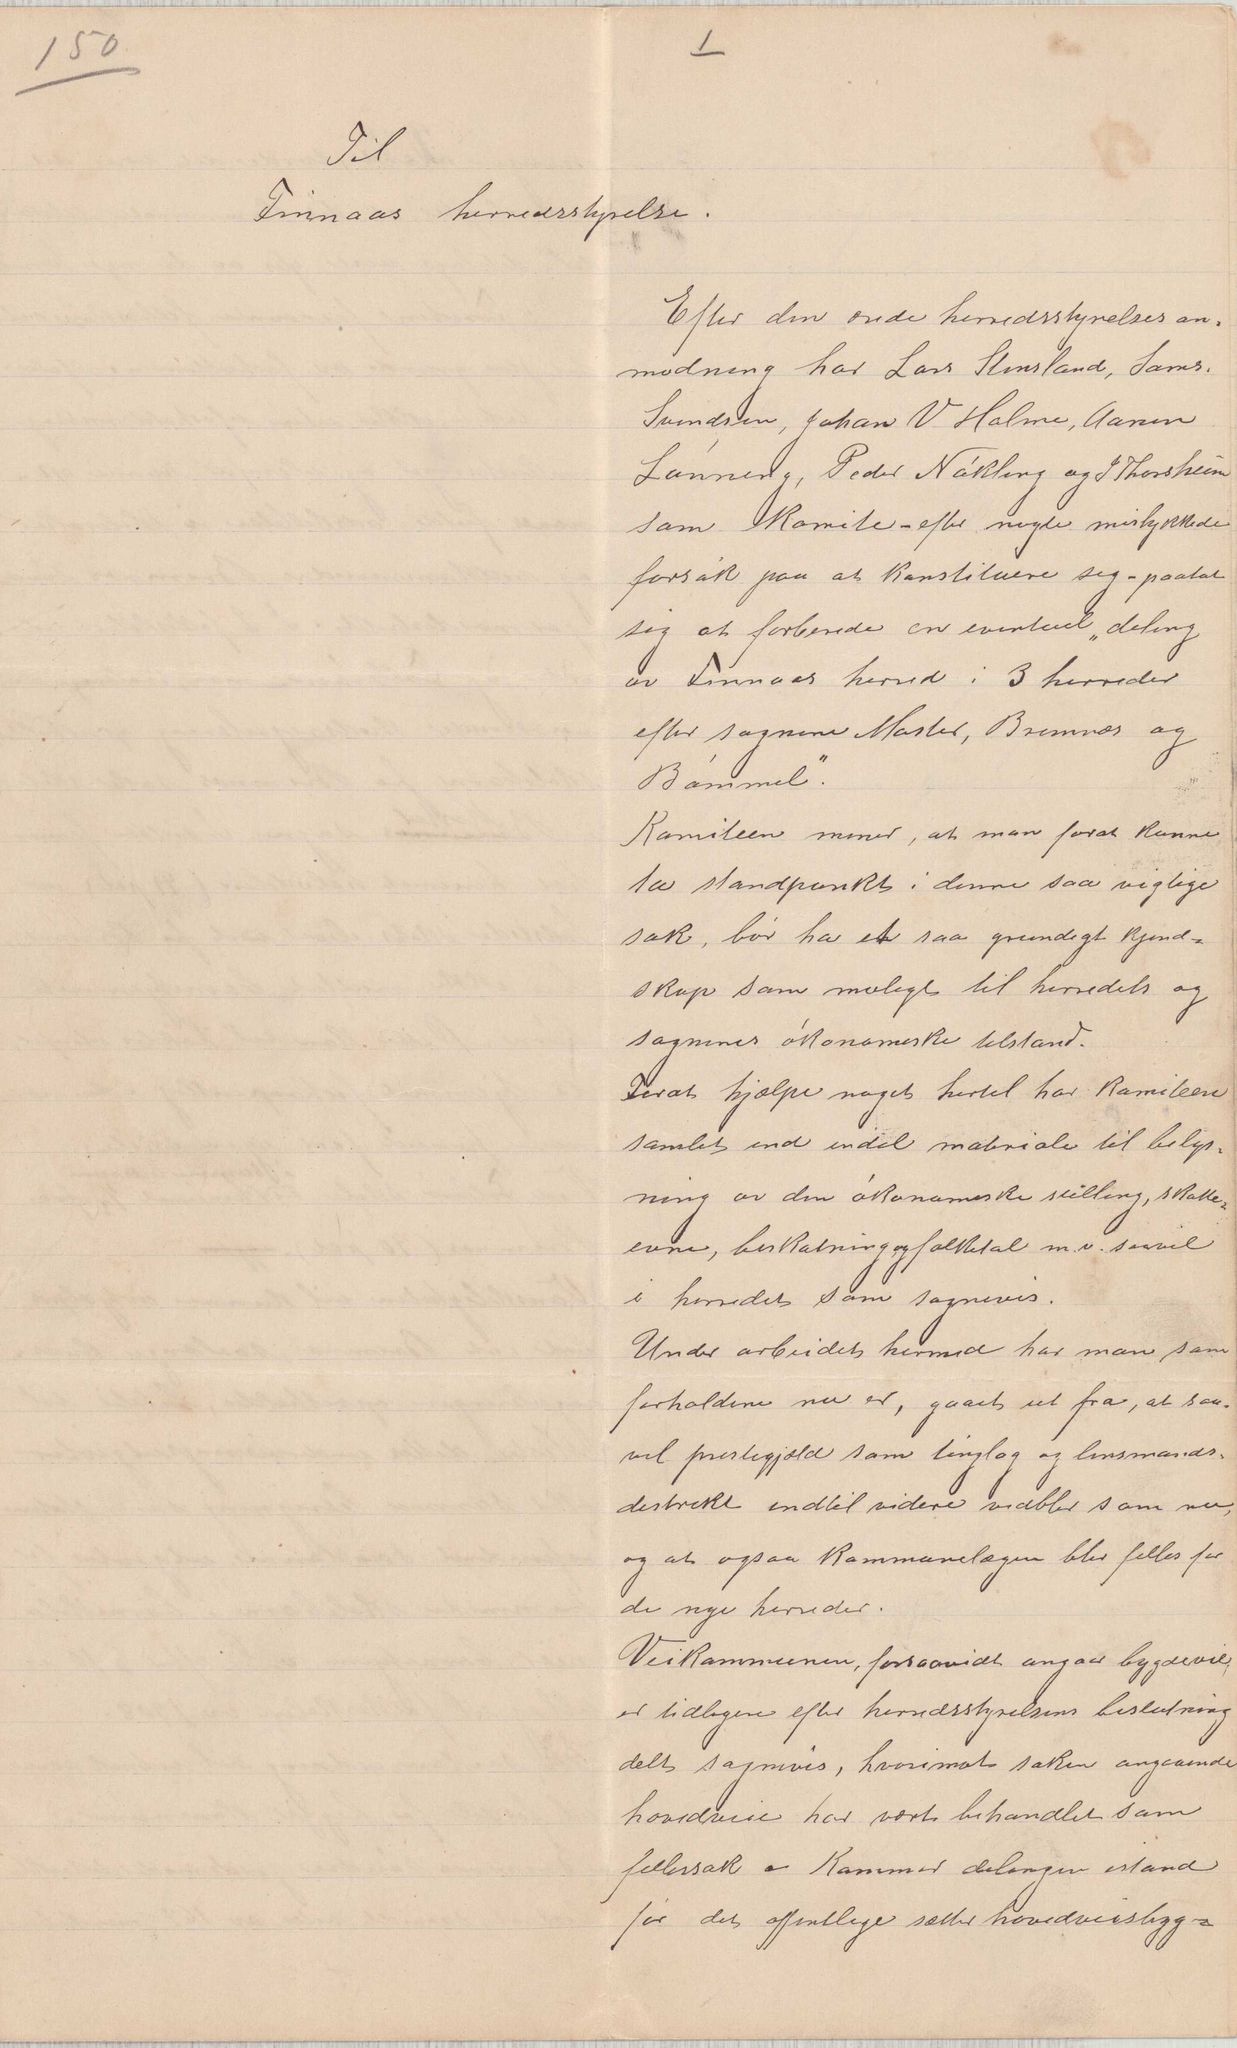 150
1
Til
Finnaas herredsstyrelse.
Efter den ærede herredsstyrelses an-
modning har Lars Stensland, Sams.
Svendsen, Johan V Holme, Aanen
Lønning, Peder Nøkling og J Thorsheim
som komite - efter nogle mislykkede
forsøk paa at konstituere seg - paatat
sig at forberede en eventuel "deling
av Finnaas herred i 3 herreder
efter sognene Moster, Bremnes og
Bømmel".
Komiteen mener, at man forat kunne
ta standpunkt i denne saa vigtige
sak, bør ha et saa grundigt kjend-
skap som muligt til herredets og
sognenes økonomiske tilstand.
Forat hjælpe noget hertil har komiteen
samlet ind endel materiale til belys-
ning av den økonomiske stilling, skatte-
evne, beskatning og folketal m.v. saavel
i herredet som sognevis.
Under arbeidet hermed har man, som
forholdene nu er, gaaet ut fra, at saa-
vel prestegjeld som tinglag og lensmands-
destrikt indtil videre vedblir som nu,
og at ogsaa kommunelægen blir felles for
de nye herreder.
Veikommunen, forsaavidt angaar bygdeveie,
er tidligere efter herredsstyrelsens beslutning
delt sognevis, hvorimot saken angaaende
hovedveie har vært behandlet som
fellessak - Kommer delingen istand
før det offentlige sætter hovedveisbyg-